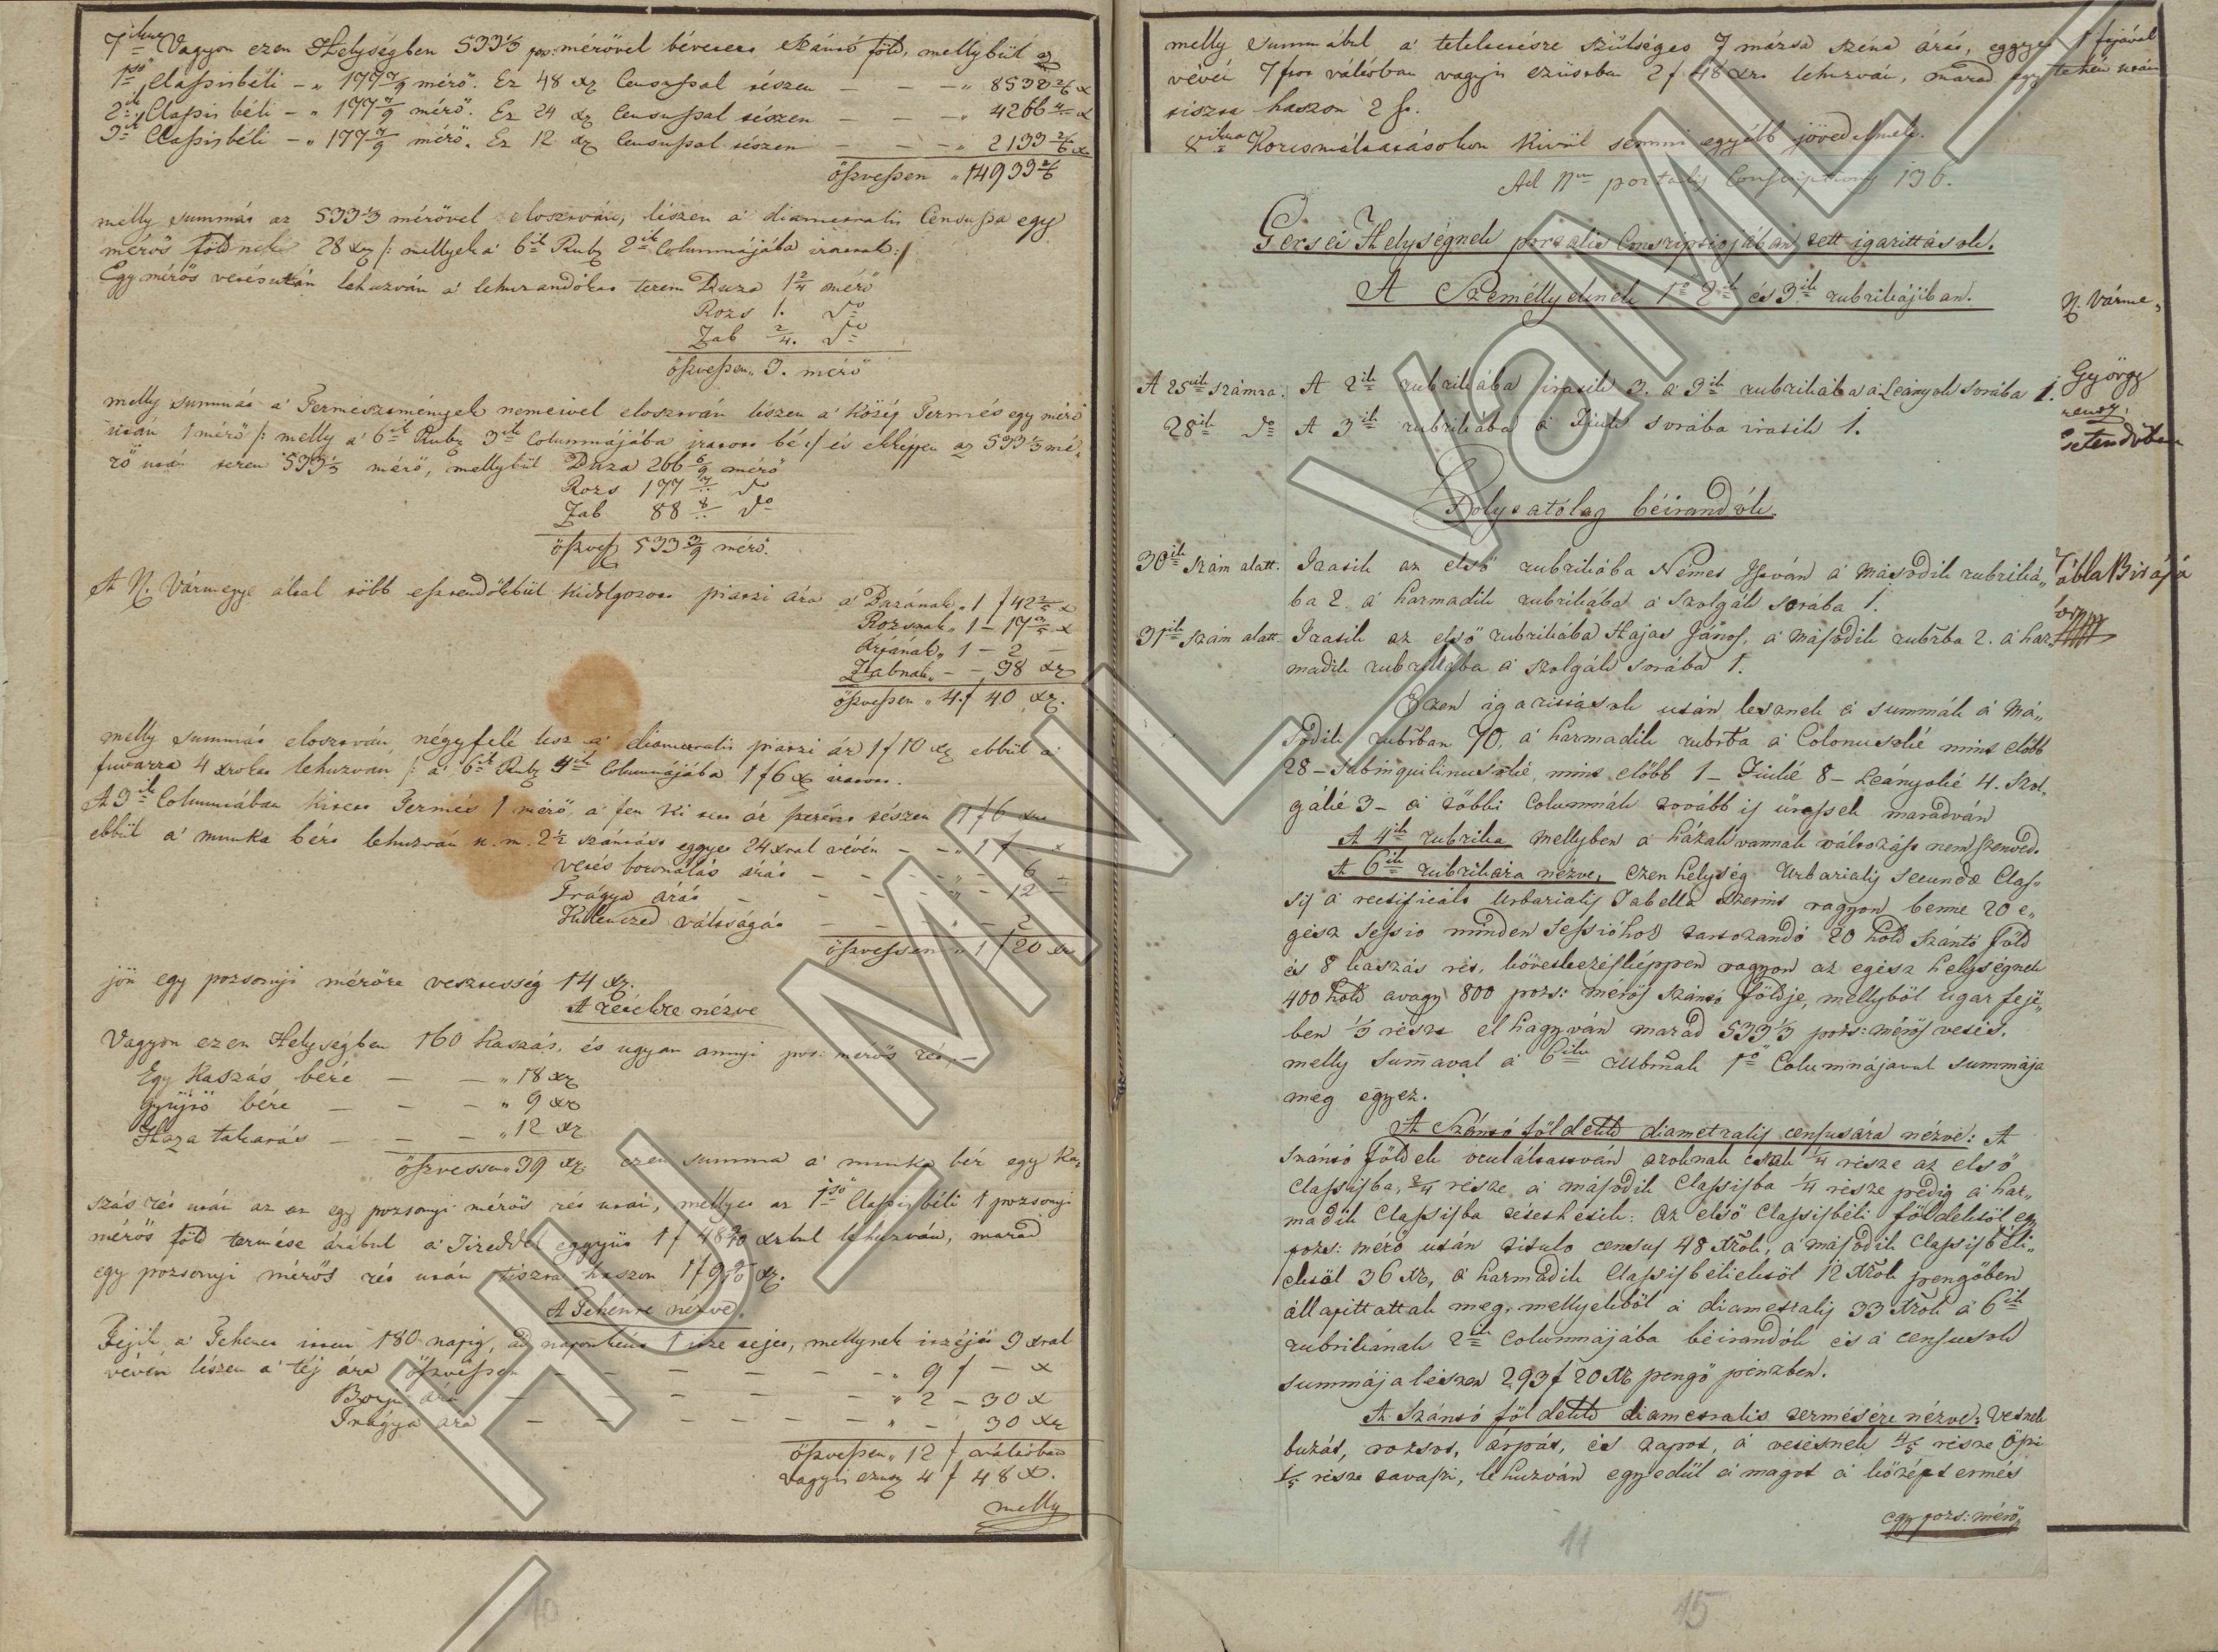 7ikre Vagyon ezen Helységben 533 1/3 pos: mérővel bévetett Szántó föld, mellybűl az
1ső Classisbéli – „ 177 7/9 mérő. Ez 48 xr Censussal tészen – – – „ 8533 2/6 x
2ik Classis béli – „ 177 7/9 mérő. Ez 24 xr Censussal tészen – – – „ 4266 4/– x
3ik Classisbéli – „ 177 7/9 mérő. Ez 12 xr Censussal tészen – – – „ 2133 2/6 x
öszvessen „ 14933 2/6
melly summát az 533 1/3 mérővel elosztván, lészen a' diametralis Censussa egy
mérős földnek 28 xr /: mellyek a' 6ik Rubr 2ik Columnájába irattak :/
Egy mérős vetés után lehuzván a' lehuzandókat terem Buza 1 2/4 mérő
Rozs 1. do
Zab 2/4. do
öszvessen „ 3. mérő
melly summát a' Termesztmények nemeivel elosztván lészen a' közép Termés egy mérő
után 1 mérő /: melly a' 6ik Rubr 3ik Columnájába iratott bé :/ és ekképpen az 533 1/3 mé-
rő után terem 533 1/3 mérő, mellybűl Buza 266 6/9 mérő
Rozs 177 7/– do
Zab 88 8/– do
öszvess 533 3/9 mérő.
A N. Vármegye által több esztendőkbűl kidolgozott piatzi ára a' Buzának „ 1 f 42 2/5 x
Rozsnak „ 1 – 17 3/5 x
Árpának „ 1 – 2 –
Zabnak „ – 38 xr
öszvessen „ 4 f 40 xr.
melly summát elosztván négyfelé lesz a' diametralis piatzi ár 1 f 10 xr ebbűl a'
fuvarra 4 xrokat lehuzván /: a' 6ik Rubr 4ik Columnájába 1 f 6 x iratott.
A 3ik Columnában kitett Termés 1 mérő, a' fen ki tett ár szerént tészen 1 f 6 xr
ebbűl a' munka bért lehuzván u. m. 2 1/2 szántást eggyet 24 xral vévén – – „ 1 f – x
vetés boronálás árát – – – – „ – 6 –
Trágya árát – – – – „ – 12 –
Kilenczed váltságát – – – „ – 2
öszvessen „ 1 f 20 xr
jön egy pozsonyi mérőre vesztesség 14 xr.
A rétekre nézve
Vagyon ezen Helységben 160 Kaszás, és ugyan annyi pos: mérős rét, –
Egy Kaszás bére – – „ 18 xr
gyüjtő bére – – – „ 9 xr
Haza takarás – – – „ 12 xr
öszvessen „ 39 xr ezen summa a' munka bér egy Ka-
szás rét után az az egy pozsonyi mérős rét után, mellyet az 1ső Classisbéli 1 pozsonyi
mérős föld termése árábul a' Tizeddel eggyütt 1 f 48 9/10 xrbul lehuzván, marad
egy pozsonyi mérős rét után tiszta haszon 1 f 9 9/10 xr.
A Tehénre nézve.
Fejik a' Tehenet innen 180 napig, ád naponként 1 itze tejet, mellynek itzéjét 3 xral
vévén lészen a' téj ára öszvessen – – – – – „ 9 f – x
Borju ára – – – – – „ 2 – 30 x
Trágya ára – – – – – „ – 30 xr
öszvessen „ 12 f váltóban
vagyis ezüst 4 f 48 x.
melly
melly summábul a' teleltetésre szükséges 7 mázsa széna árát, eggyet 1 fjával
vévén 7 ftot váltóban vagyis ezüstben 2 f 48 xrt lehuzván, marad egy tehén után
tiszta haszon 2 f.
8ikra Korcsmáltatásokon kivül semmi egyébb jövedelmek.
Ad Num portalis Conscriptionis 136.
Gersei Helységnek portalis Conscriptiojában tett igazittások.
A Személlyeknek 1ő 2ik és 3ik rubrikájiban.
N. Várme-
György
A 25ik számra. A 2ik rubrikába iratik 3. a 3ik rubrikába a Leányok sorába 1.
28ik do A 3ik rubrikába a Fiuk sorába iratik 1.
Folyvatólag béirandók.
30ik szám alatt. Iratik az első rubrikába Némes István a második rubriká-
ba 2. a harmadik rubrikába a szolgák sorába 1.
Tábla Birája
31ik szám alatt. Iratik az első rubrikába Hajas János, a második rubrba 2. a har-
madik rubrikába a szolgák sorába 1.
Ezen igazittások után lesznek a summák a má-
sodik rubrban 70, a harmadik rubrba a Colonusoké mint előbb
28 – Subinquilinusoké, mint előbb 1 – Fiuké 8 – Leányoké 4. Szol-
gáké 3 – a többi Columnák tovább is üressek maradván
A 4ik rubrika mellyben a házak vannak változást nem szenved.
A 6ik rubrikára nézve, ezen helység Urbarialis Secundae Clas-
sis a rectificált Urbarialis Tabella szerint vagyon benne 20 e-
gész Sessio minden Sessióhoz tartozandó 20 hold szántó föld
és 8 kaszás rét, következésképpen vagyon az egész helységnek
400 hold avagy 800 pozs: mérős szántó földje, mellyből ugar fejé-
ben 1/3 részt el hagyván marad 533 1/3 pozs: mérős vetés,
melly summaval a 6ik rubrnak 1ő Columnájanak summája
meg egyez.
A Szántó földeknek diametralis censusára nézve: A
szántó földek oculáltatván azoknak csak 1/4 része az első
Classisba, 2/4 része a második Classisba 1/4 része pedig a har-
madik Classisba tétethetik: az első Classisbéli földektől egy
pozs: mérő után titulo census 48 Xrok, a második Classisbéli-
ektől 36 Xr, a harmadik Classisbéliektől 12 Xrok pengőben
állapittattak meg, mellyekből a diametralis 33 Xrok a 6ik
rubrikának 2ik Columnájába béirandók és a censusok
summája lészen 293 f 20 Xr pengő pénzben.
A Szántó földeknek diametralis termésére nézve: Vetnek
buzát, rozsot, árpát, és zapot, a vetésnek 4/5 része őszi
1/5 része tavaszi, lehuzván egyedül a magot a középtermés
egy pozs: mérő
11
15
HU MNL VaML